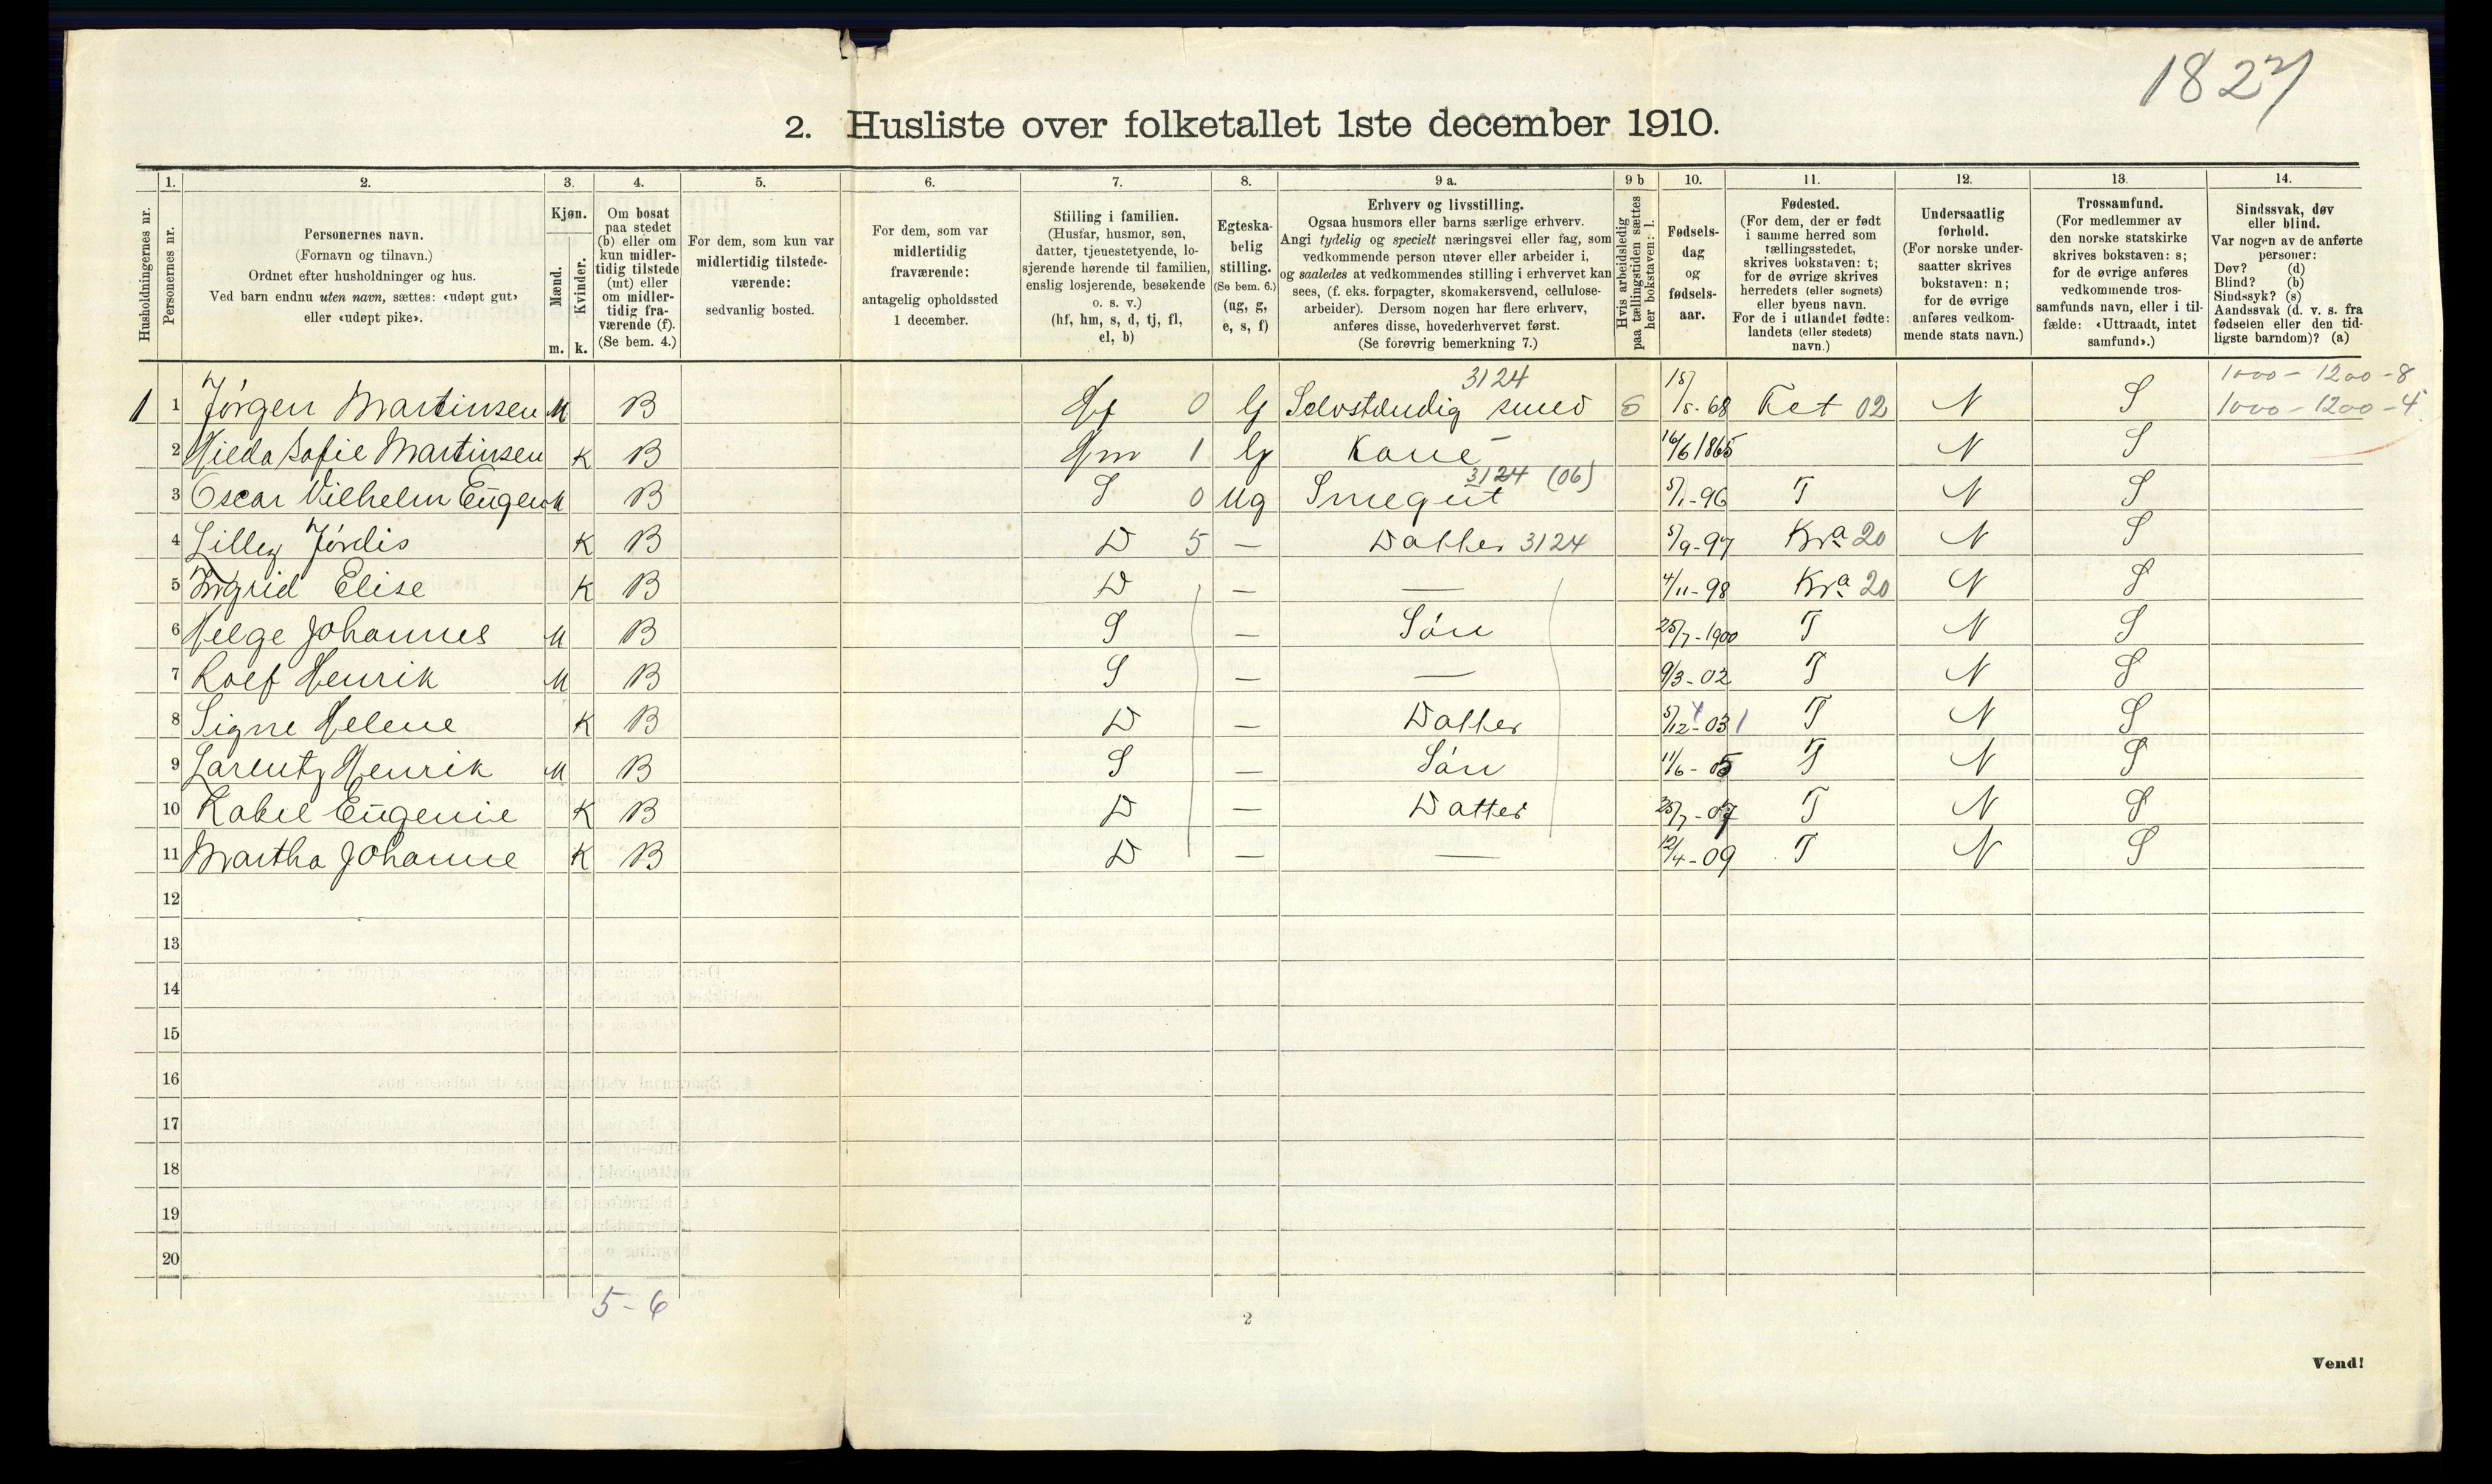 1827
2. Husliste over folketallet 1ste december 1910.
Husholdningernes nr.
1.
Personernes nr.
2.
Personernes navn.
(Fornavn og tilnavn.)
Ordnet efter husholdninger og hus.
Ved barn endnu uten navn, sættes: «udøpt gut»
eller «udøpt pike».
3.
Kjøn.
Mænd.
Kvinder.
m. k.
4.
Om bosat
paa stedet
(b) eller om
kun midler-
tidig tilstede
(mt) eller
om midler-
tidig fra-
værende (f).
(Se bem. 4.)
5.
For dem, som kun var
midlertidig tilstede-
værende:
sedvanlig bosted.
6.
For dem, som var
midlertidig
fraværende:
antagelig opholdssted
1 december.
7.
Stilling i familien.
(Husfar, husmor, søn,
datter, tjenestetyende, lo-
sjerende hørende til familien,
enslig losjerende, besøkende
o. s. v.)
(hf, hm, s, d, tj, fl,
el, b)
8.
Egteska-
belig
stilling.
(Se bem. 6.)
(ug, g,
e, s, f)
9 a.
Erhverv og livsstilling.
Ogsaa husmors eller barns særlige erhverv.
Angi tydelig og specielt næringsvei eller fag, som
vedkommende person utøver eller arbeider i,
og saaledes at vedkommendes stilling i erhvervet kan
sees, (f. eks. forpagter, skomakersvend, cellulose-
arbeider). Dersom nogen har flere erhverv,
anføres disse, hovederhvervet først.
(Se forøvrig bemerkning 7.)
9 b
Hvis arbeidsledig
paa tællingstiden sættes
her bokstaven: l.
10.
Fødsels-
dag
og
fødsels-
aar.
11.
Fødested.
(For dem, der er født
i samme herred som
tællingsstedet,
skrives bokstaven: t;
for de øvrige skrives
herredets (eller sognets)
eller byens navn.
For de i utlandet fødte:
landets (eller stedets)
navn.)
12.
Undersaatlig
forhold.
(For norske under-
saatter skrives
bokstaven: n;
for de øvrige
anføres vedkom-
mende stats navn.)
13.
Trossamfund.
(For medlemmer av
den norske statskirke
skrives bokstaven: s;
for de øvrige anføres
vedkommende tros-
samfunds navn, eller i til-
fælde: «Uttraadt, intet
samfund».)
14.
Sindssvak, døv
eller blind.
Var nogen av de anførte
personer:
Døv? (d)
Blind? (b)
Sindssyk? (s)
Aandssvak (d. v. s. fra
fødselen eller den tid-
ligste barndom)? (a)
3124 1000 - 1200 - 8
1 1 Jørgen Martinsen M B Hf 0 G Selvstændig smed S /5-68 Fet 02 N S 1000 - 1200 - 4
2 Hilda Sofie Martinsen K B Hm 1 G Kone 16/6 1865 N S
3124 (06)
3 Oscar Vilhelm Eugen M B S 0 Ug Smegut 5/1-96 T N S
4 Lilly Jørdis K B D 5 — Datter 3124 5/9-97 Kra. 20 N S
5 Ingrid Elise K B D — — 4/11-98 Kra. 20 N S
6 Helge Johannes M B S — Søn 25/7-1900 T N S
7 Rolf Henrik M B S — — 9/3-02 T N S
8 Signe Helene K B D — Datter 5/12-03 T N S
9 Larentz Henrik M B S — Søn 11/6-05 T N S
10 Kabel Eugenie K B D — Datter 25/7-07 T N S
11 Martha Johanne K B D — — 12/4-09 T N S
12
13
14
15
16
17
18
19
20
5-6
2
Vend!